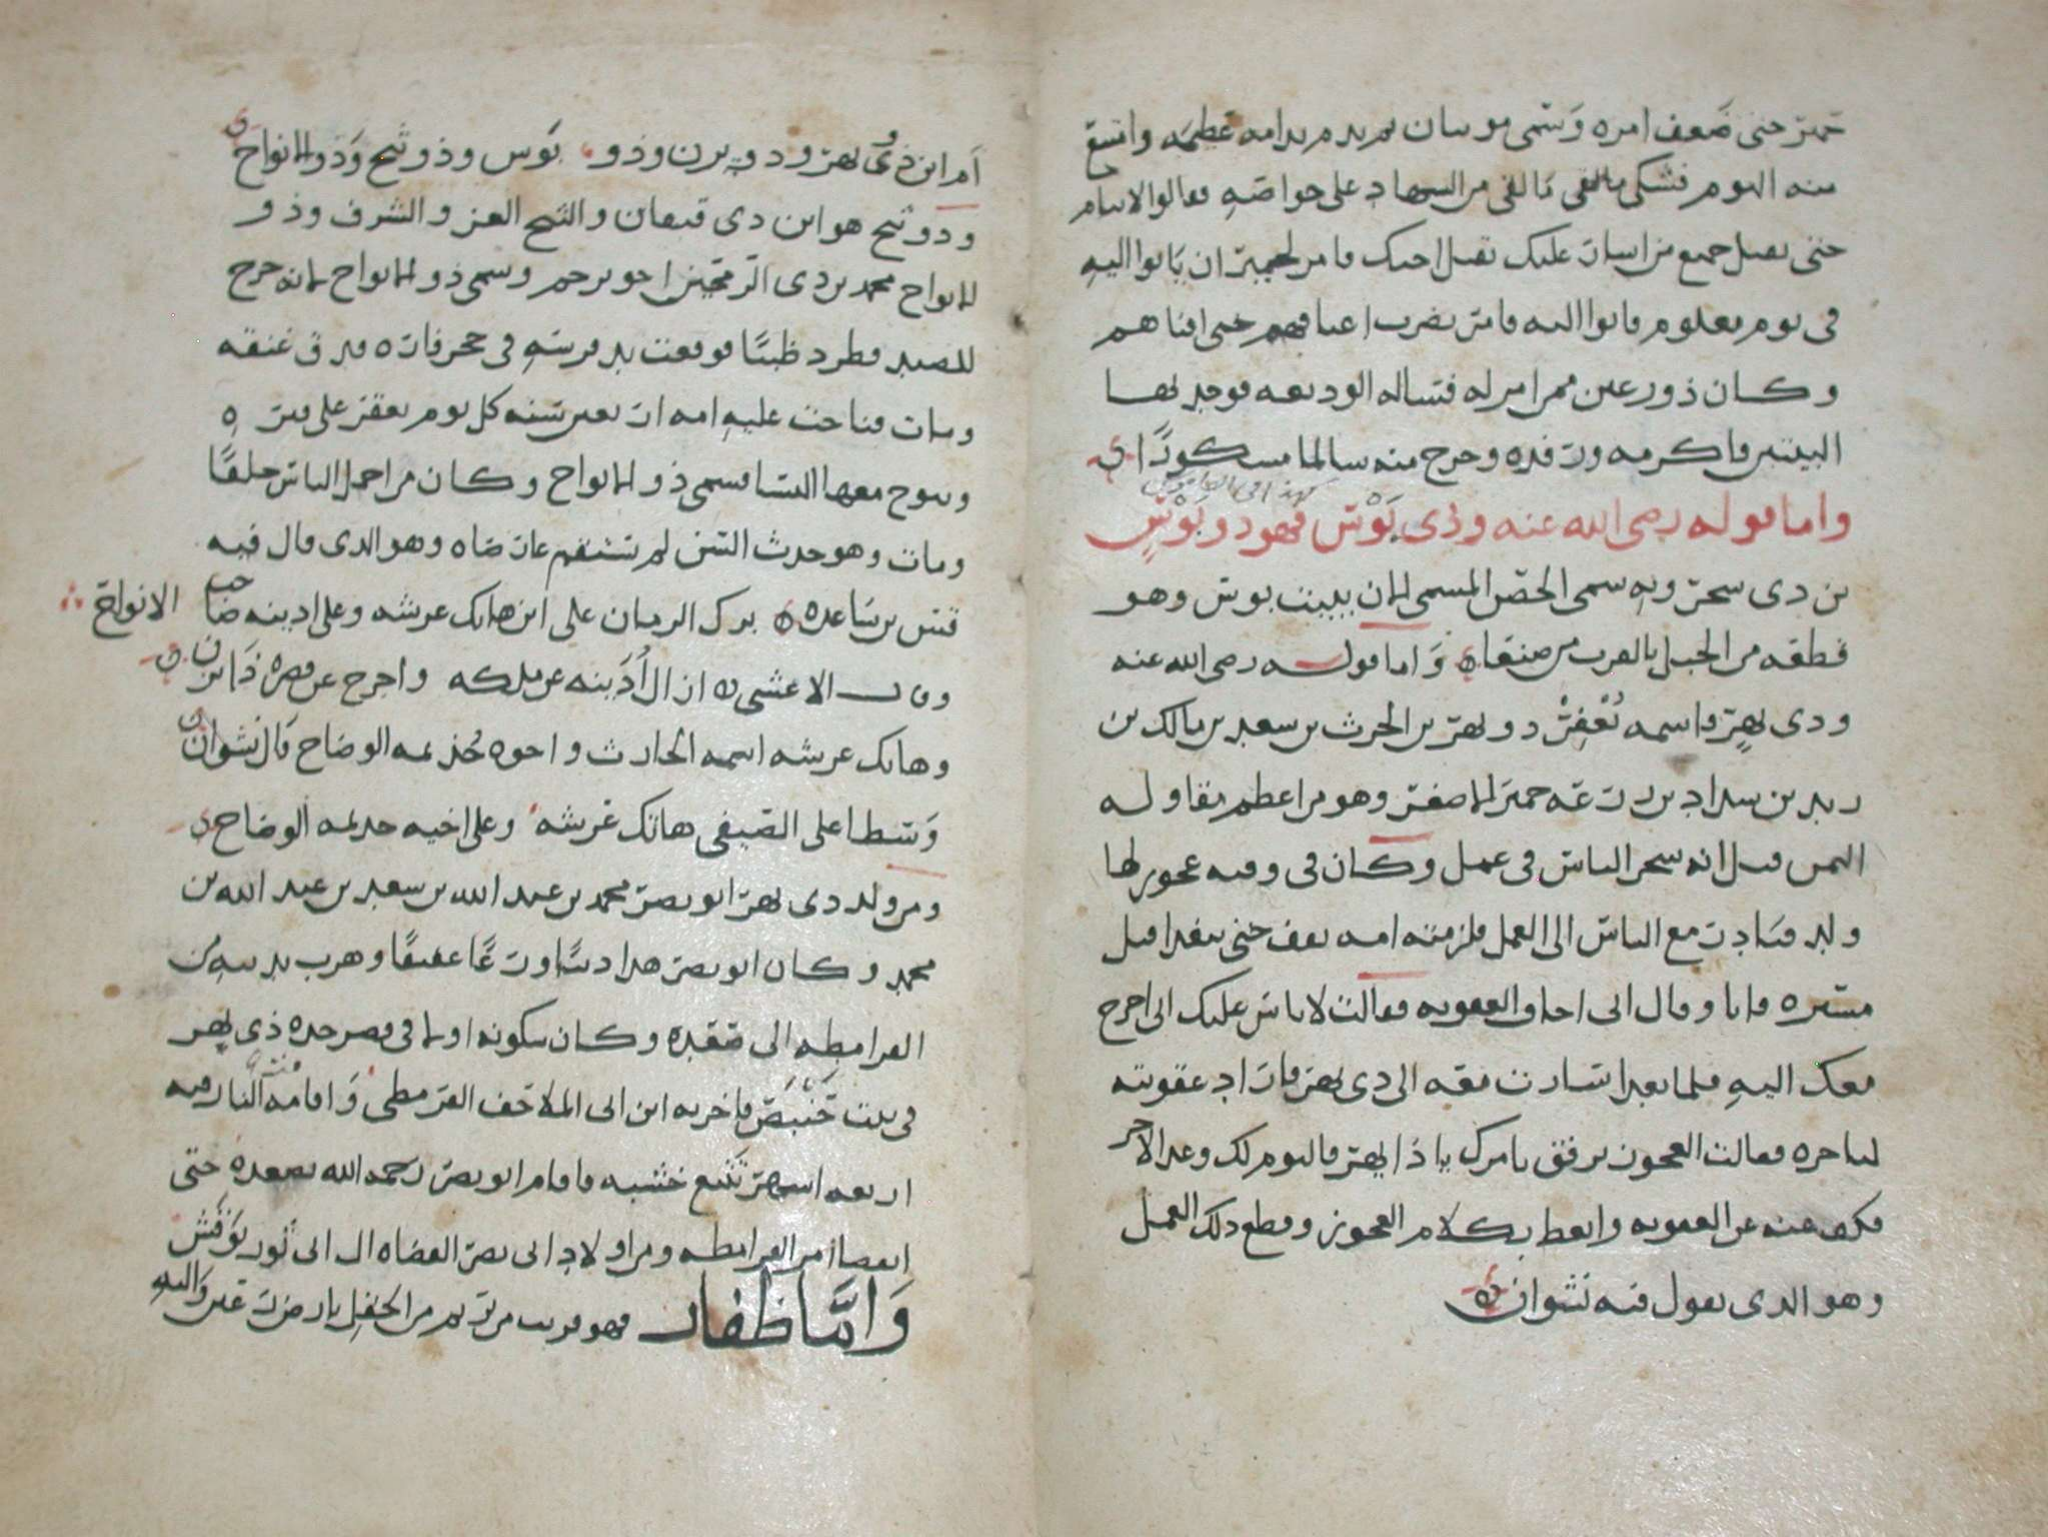 حمير حتى ضعف امره وسمى موسان ثم ندم ندامه عظيمه وامتنع
منه النوم فشكى ما لقى من السهاد على خواصه فقالوا لا تنام
حتى تقتل جميع من اشار عليك بقتل اخيك فامر لحمير ان ياتوا اليه
فى يوم معلوم فاتوا اليه فامر بضرب اعناقهم حتى افناهم
وكان ذو رعين ممن امر له فساله الوديعه فوجد بها
البيتين فاكرمه ورفده وخرج منه سالما مشكورًا
واما قوله رضى الله عنه وذى بَوْس فهو ذو بَوْسٍ
بن ذى سحر وبه سمى الحصن المسمى الان ببيت بوس وهو
قطعه من الجبل بالقرب من صنعا واما قوله رضى الله عنه
وذى يهر فاسمه يُعْفِرْ ذو يهر بن الحرث بن سعد بن مالك بن
زيد بن سدد بن زرعه حمير الاصغر وهو من اعظم مقاوله
اليمن قيل انه سخر الناس فى عمل وكان فى وقته عجوز لها
ولد فسارت مع الناس الى العمل فلزمته امه يقف حتى يتغدا قبل
مسيره فابا وقال انى اخاف العقوبه فقالت لا باس عليك انى اخرج
معك اليه فلما تغدا سارت معه الى ذى يهر فاراد عقوبته
لتاخره فقالت العجوز ترفق بامرك يا ذا يهر فاليوم لك وغدا لاخر
فكف عنه عن العقوبه واتعظ بكلام العجوز وقطع ذلك العمل
وهو الذى يقول فيه نشوان
ام ابن ذى يهر وذو يزن وذو بوس وذو ثبح وذو الانواح
وذو ثبح هو ابن ذى قيفان والثبح العز والشرف وذو
الانواح محمد بن ذى اخو يرحم وسمى ذو الانواح لانه خرج
للصيد فطرد ظبيًا فوقعت يد فرسه فى جحر فاره فدق عنقه
ومات فناحت عليه امه اربعين سنه كل يوم تعقر على قبره
وينوح معها النسا فسمى ذو الانواح وكان من اجمل الناس خلقًا
ومات وهو حدث السن لم وهو الذى قال فيه
قس بن ساعده برك الزمان على ابن هاتك عرشه وعلى اذينه صاحب الانواح
وقال الاعشى ازال اُذَينه عن ملكه واخرج عن قصره ذا يزن
وهاتك عرشه اسمه الحارث واخوه جُذيمه الوضاح قال نشوان
وسطا على الضيفى هاتك عرشه وعلى اخيه جذيمه الوضاح
ومن ولد ذى يهر ابو نصر محمد بن عبد الله بن سعيد بن عبد الله بن
محمد وكان ابو نصر هذا دينًا ورعًا عفيفًا وهرب بدينه من
القرامطه الى صعده وكان سكونه اولا فى قصر جده ذى يهر
فى بيت حَنْبَص فاخربه ابن ابى الملاحف القرمطى واقامه النار فيه
اربعه اشهر تتبع خشبه فاقام ابو نصر رحمه الله بصعده حتى
انقضا امر القرامطه ومن اولاد ابى نصر القضاه ال ابى ثور
وَامَّا ظفار فهو قريب من يريم من الحقل بارض رعين واليه